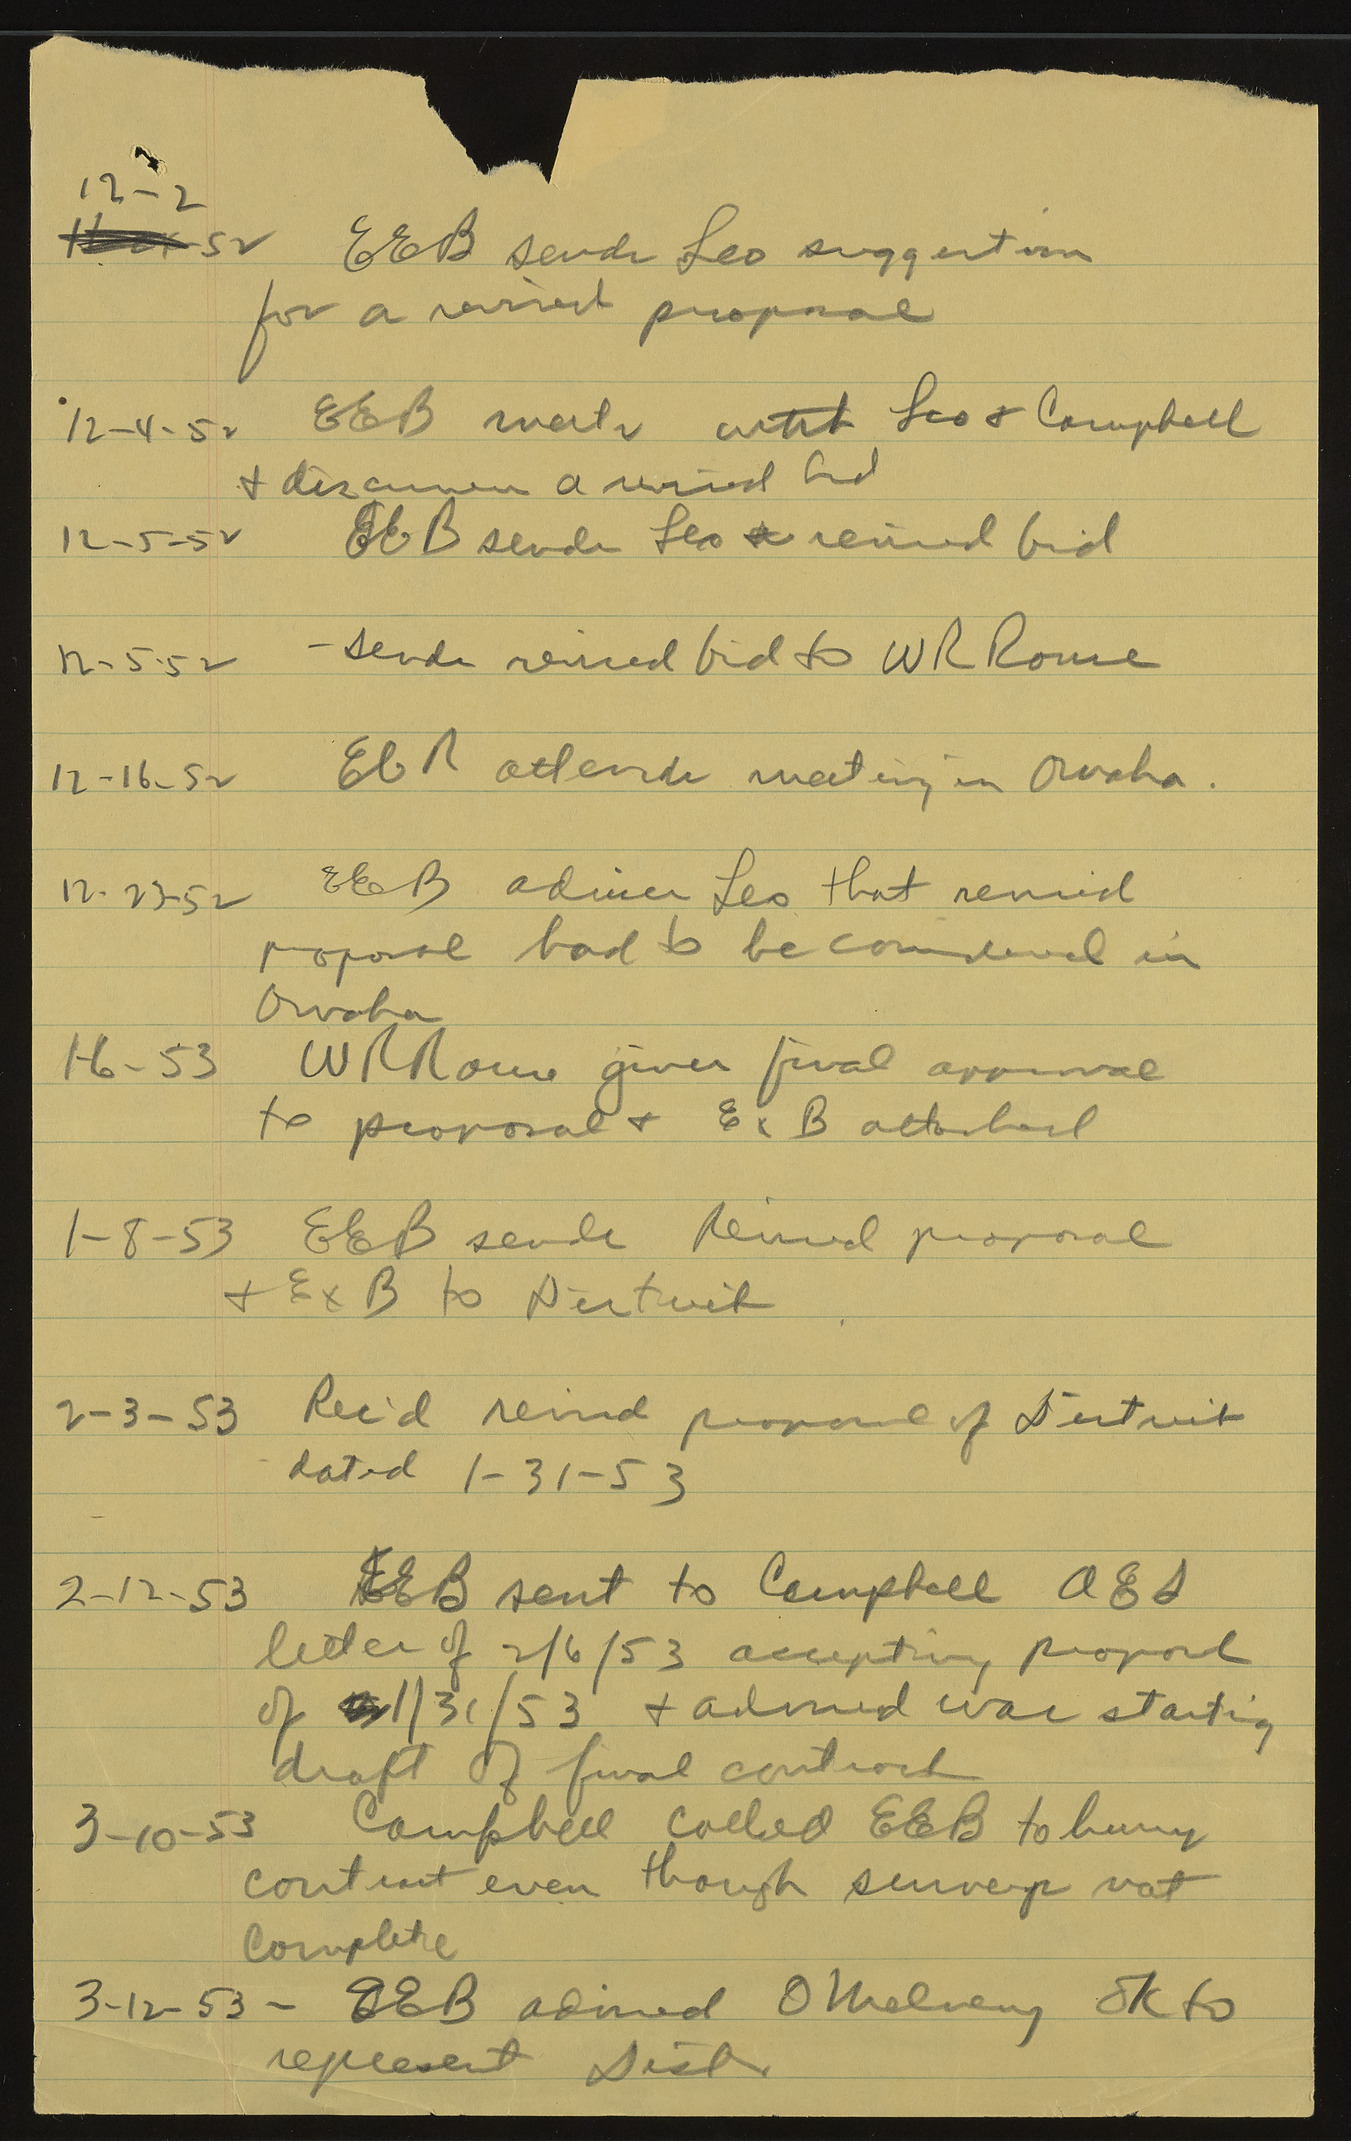 12-2
52 EEB sends Leo suggestion
for a revised proposal
12-4-52 EEB meets with Leo & Campbell
& discusses a revised bid
12-5-52 EEB sends Leo revised bid
12-5-52 - sends revised bid to WR Rouse
12-16-52 EEB attends meeting in Omaha.
12-23-52 EEB advises Leo that revised
proposal had to be considered in
Omaha
1-6-53 WR Rouse gives final approval
to proposal & Ex B attached
1-8-53 EEB sends Revised proposal
& Ex B to District
2-3-53 Rec'd revised proposal of District
dated 1-31-53
2-12-53 EEB sent to Campbell AES
letter of 2/6/53 accepting proposal
of 1/31/53 & advised was starting
draft of final contract
3-10-53 Campbell called EEB to hurry
contract even though surveys not
complete
3-12-53 - EEB advised O'Melveny OK to
represent Dist.